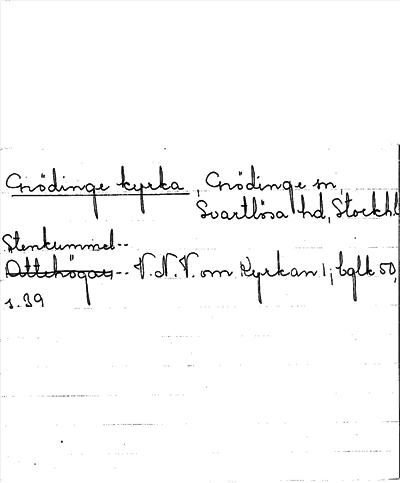 Grödinge kyrka, Grödinge sn,
Svartlösa hd, Stockhl
Stenkummel--
Ättehögar-- V.N.V. om Kyrkan 1; bglk 50,
s. 39